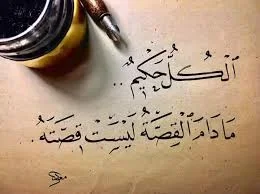 ٱلْكُلُّ حَكِيمٌ ..
مَادَامَ ٱلْقِصَّةُ لَيْسَتْ قِصَّتَهُ.